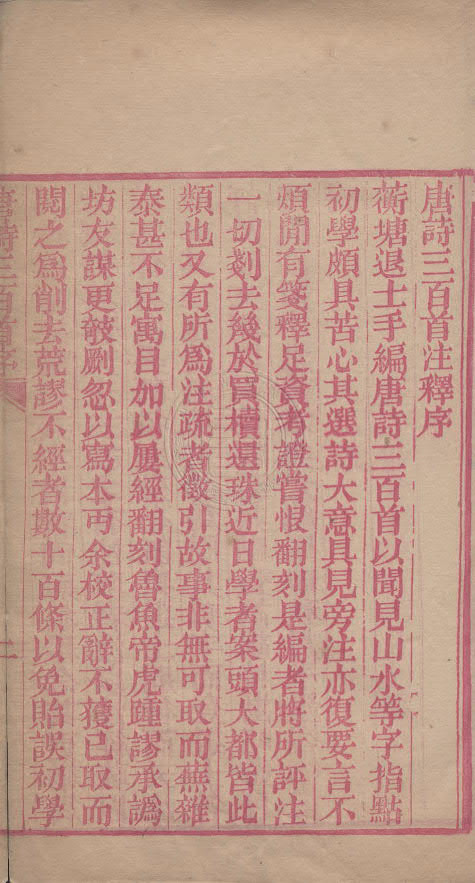 唐詩三百首注釋序
蘅塘退士手編唐詩三百首以聞見山水等字指點
初學頗具苦心其選詩大意具見旁注亦復要言不
煩閒有箋釋足資考證嘗恨翻刻是編者將所評注
一切剗去幾於買櫝還珠近日學者案頭大都皆此
類也又有所為注疏者徵引故事非無可取而蕪雜
泰甚不足寓目加以屢經翻刻魯魚帝虎踵謬承譌
坊友謀更瓻劂忽以寫本丐余校正辭不獲已取而
閱之為削去荒謬不經者數十百條以免貽誤初學
唐詩三百首序
一